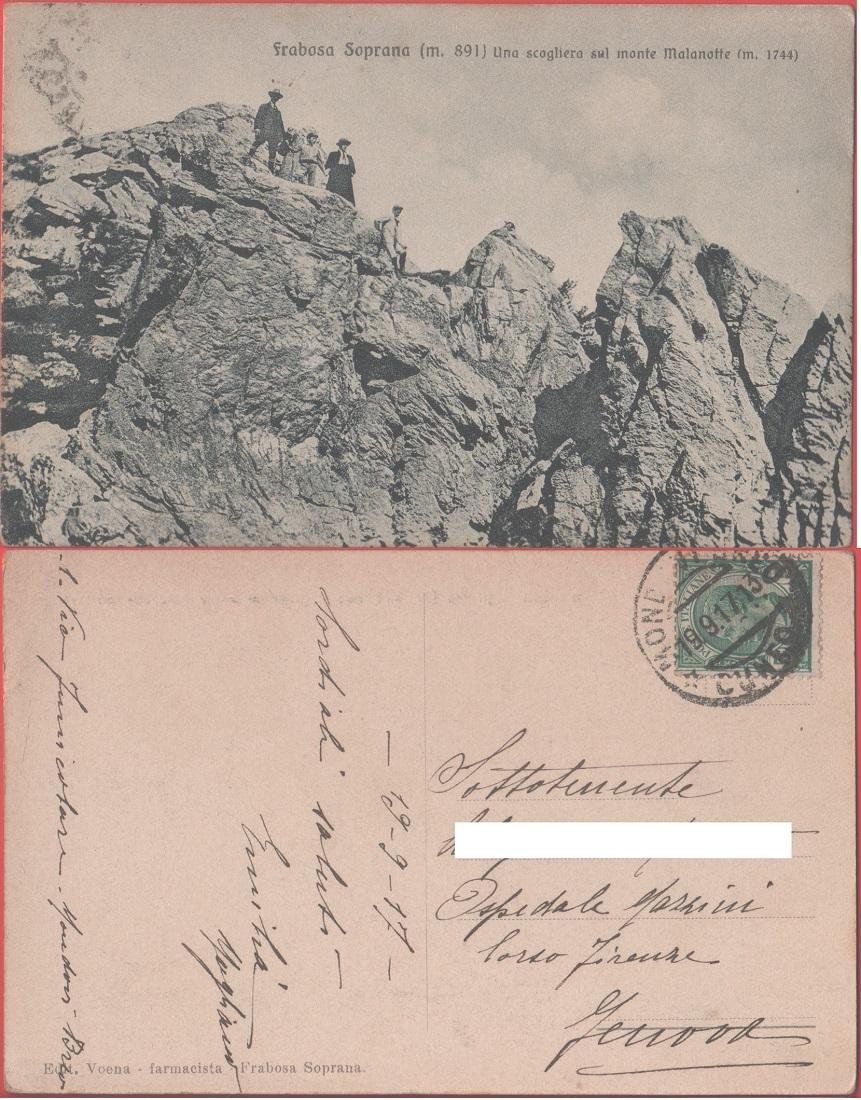 Frabosa Soprana (m. 891) Una scogliera sul monte Malanotte (m. 1744)
MOND
19.9.17.13
CUNEO
POSTE ITALIANE
– 19-9-17 –
Cordiali saluti –
Emilia
Via funicolare. Mondovì Breo
Sottotenente
Ospedale Mazzini
Corso Firenze
Genova
Edit. Voena - farmacista - Frabosa Soprana.